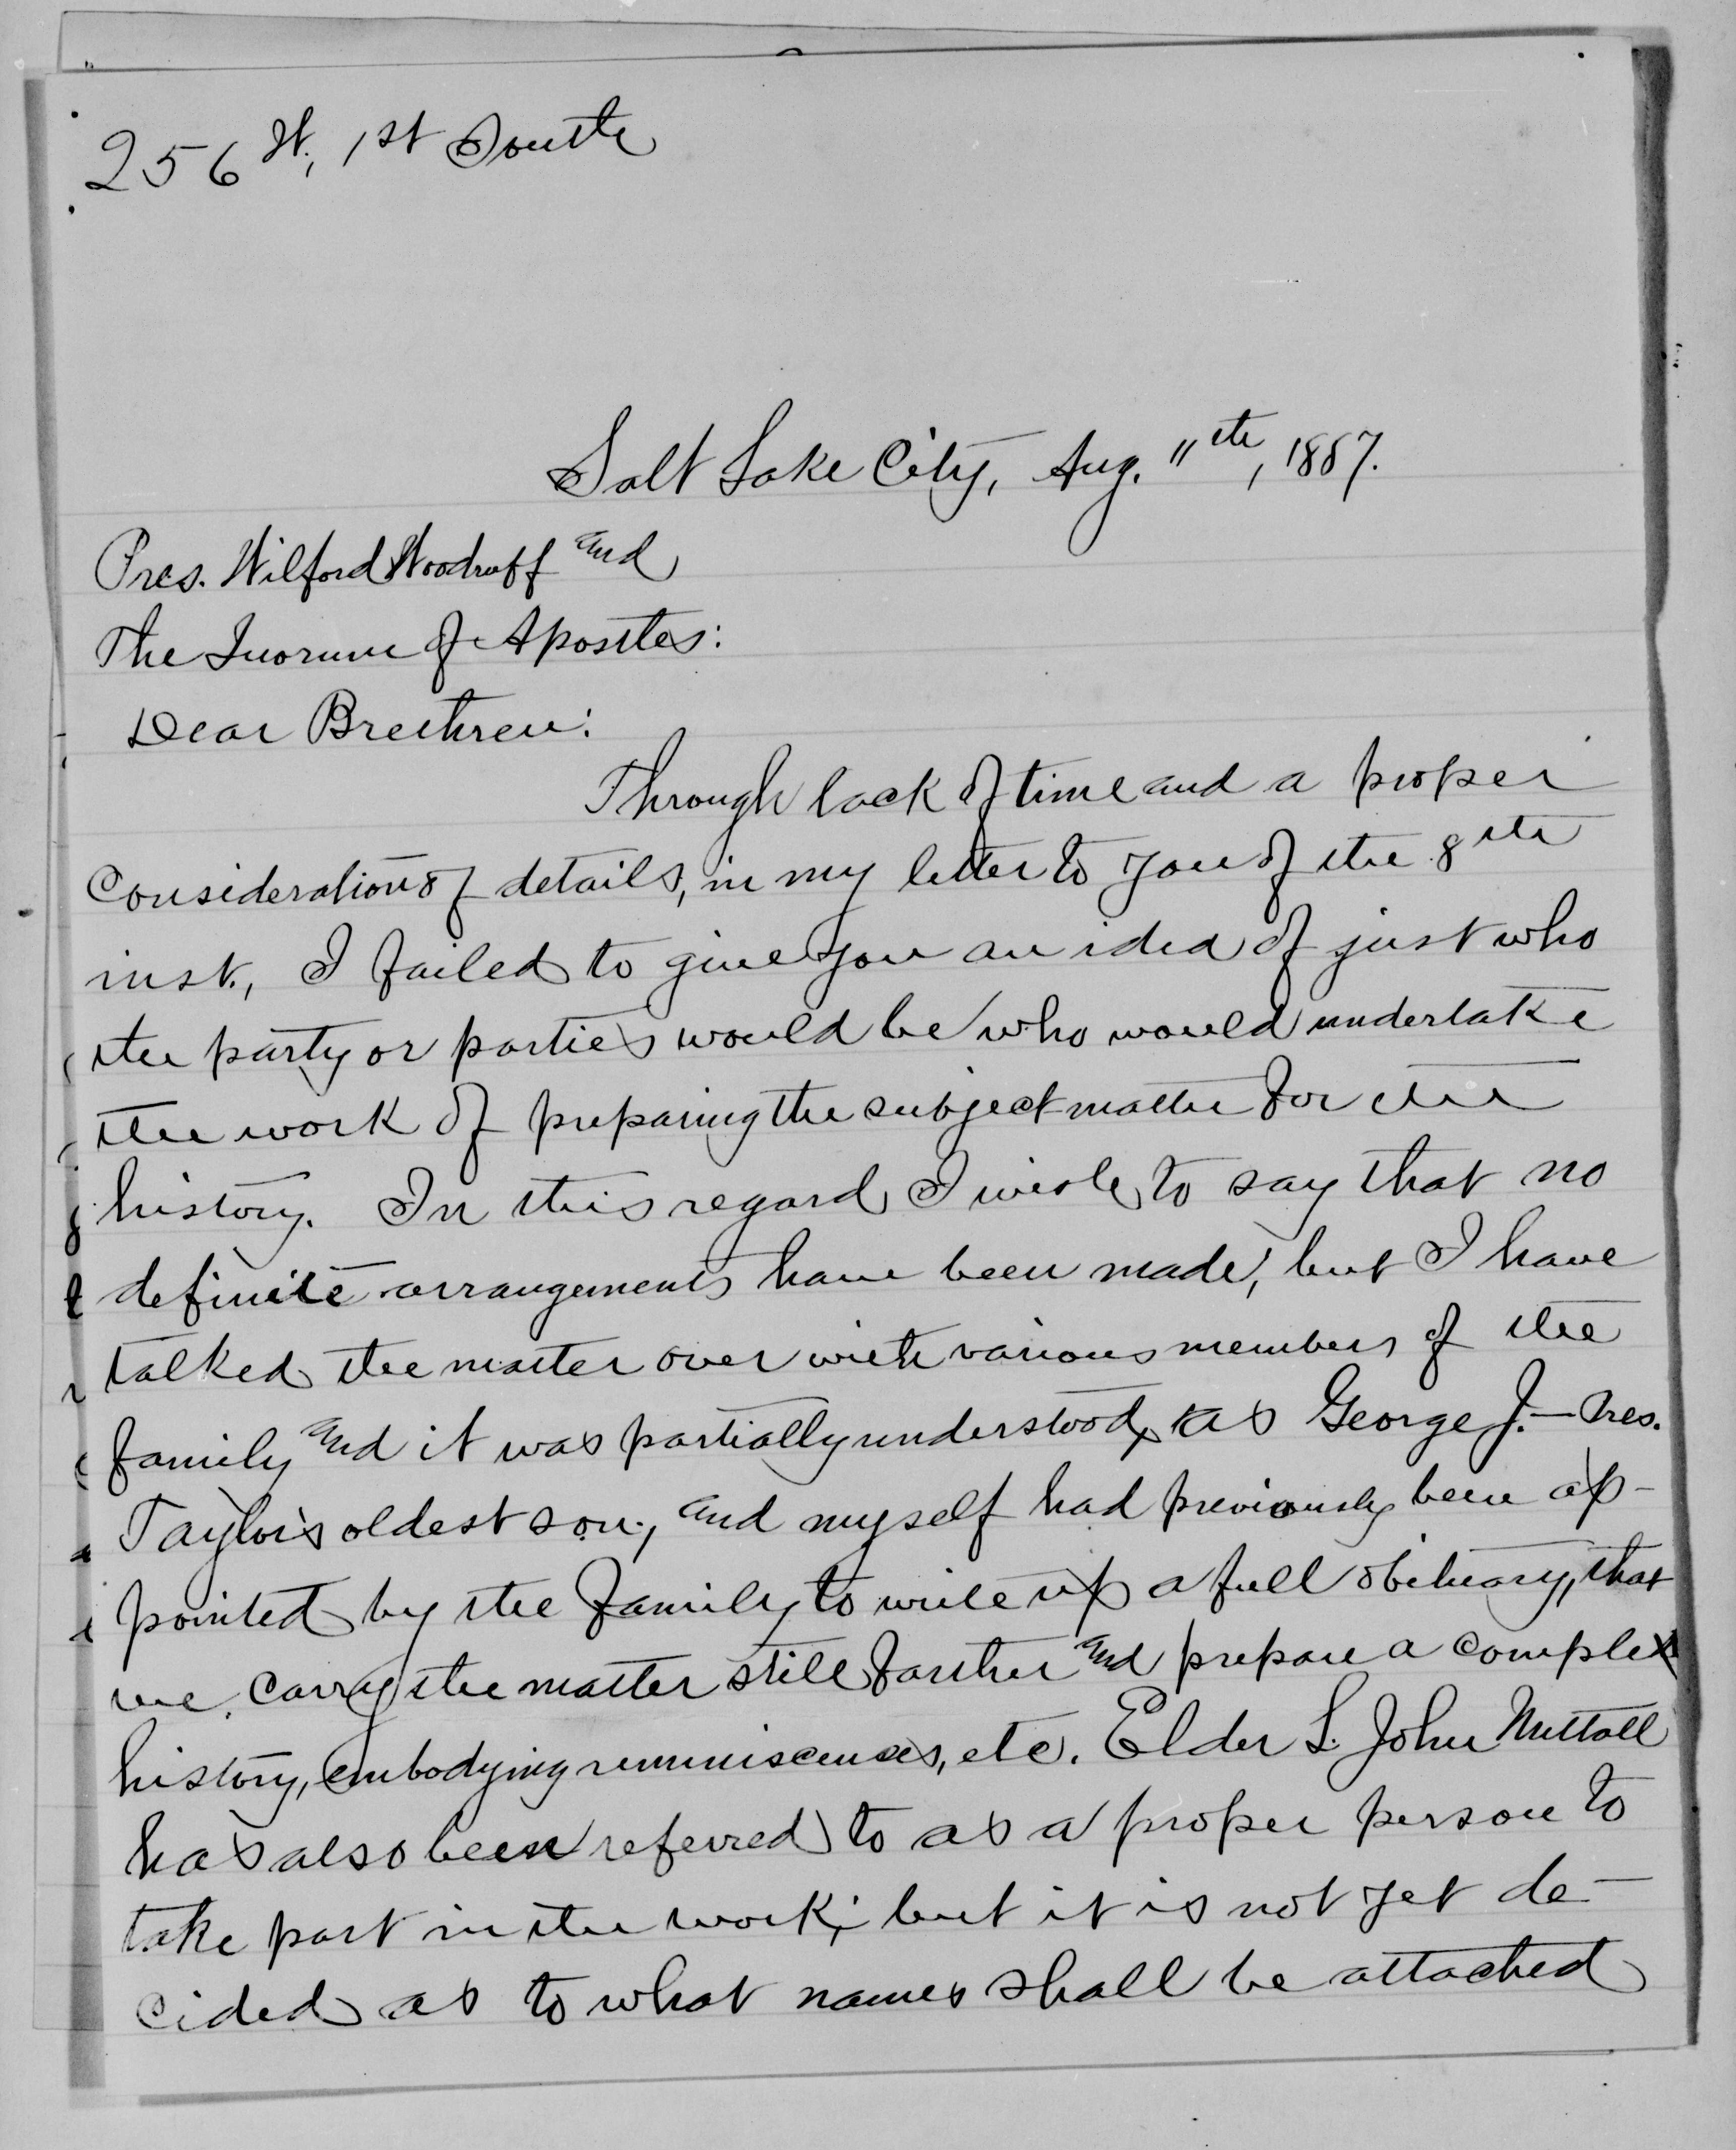 256 W, 1st South
Salt Lake City, Aug. 11th, 1887.
Pres. Wilford Woodruff and
The Quorum of Apostles:
Dear Brethren:
Through lack of time and a proper
consideration of details, in my letter to you of the 8th
inst., I failed to give you an idea of just who
the party or parties would be who would undertake
the work of preparing the subject matter for the
history. In this regard I wish to say that no
definite arrangements have been made, but I have
talked the matter over with various members of the
family and it was partially understood, as George J.— Pres.
Taylor's oldest son, and myself had previously been ap-
pointed by the family to write up a full obituary, that
we carry the matter still farther and prepare a complete
history, embodying reminiscenses, etc. Elder L. John Nuttall
has also been referred to as a proper person to
take part in the work; but it is not yet de-
cided as to what names shall be attached